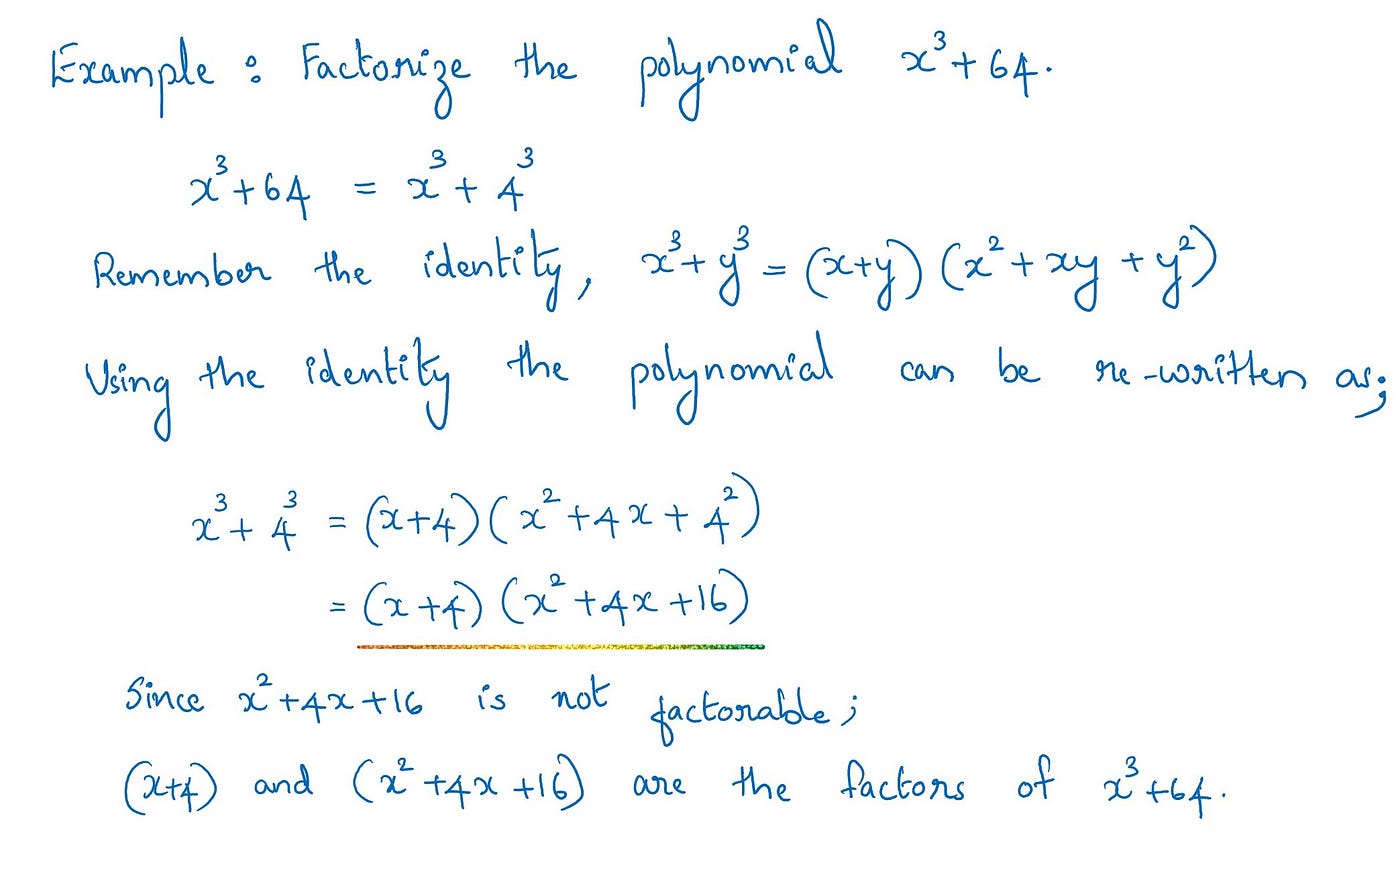 Example : Factorize the polynomial x³+64.
x³+64 = x³+4³
Remember the identity, x³+y³ = (x+y) (x²+xy+y²)
Using the identity the polynomial can be re-written as;
x³+4³ = (x+4)(x²+4x+4²)
= (x+4) (x²+4x+16)
Since x²+4x+16 is not factorable;
(x+4) and (x²+4x+16) are the factors of x³+64.